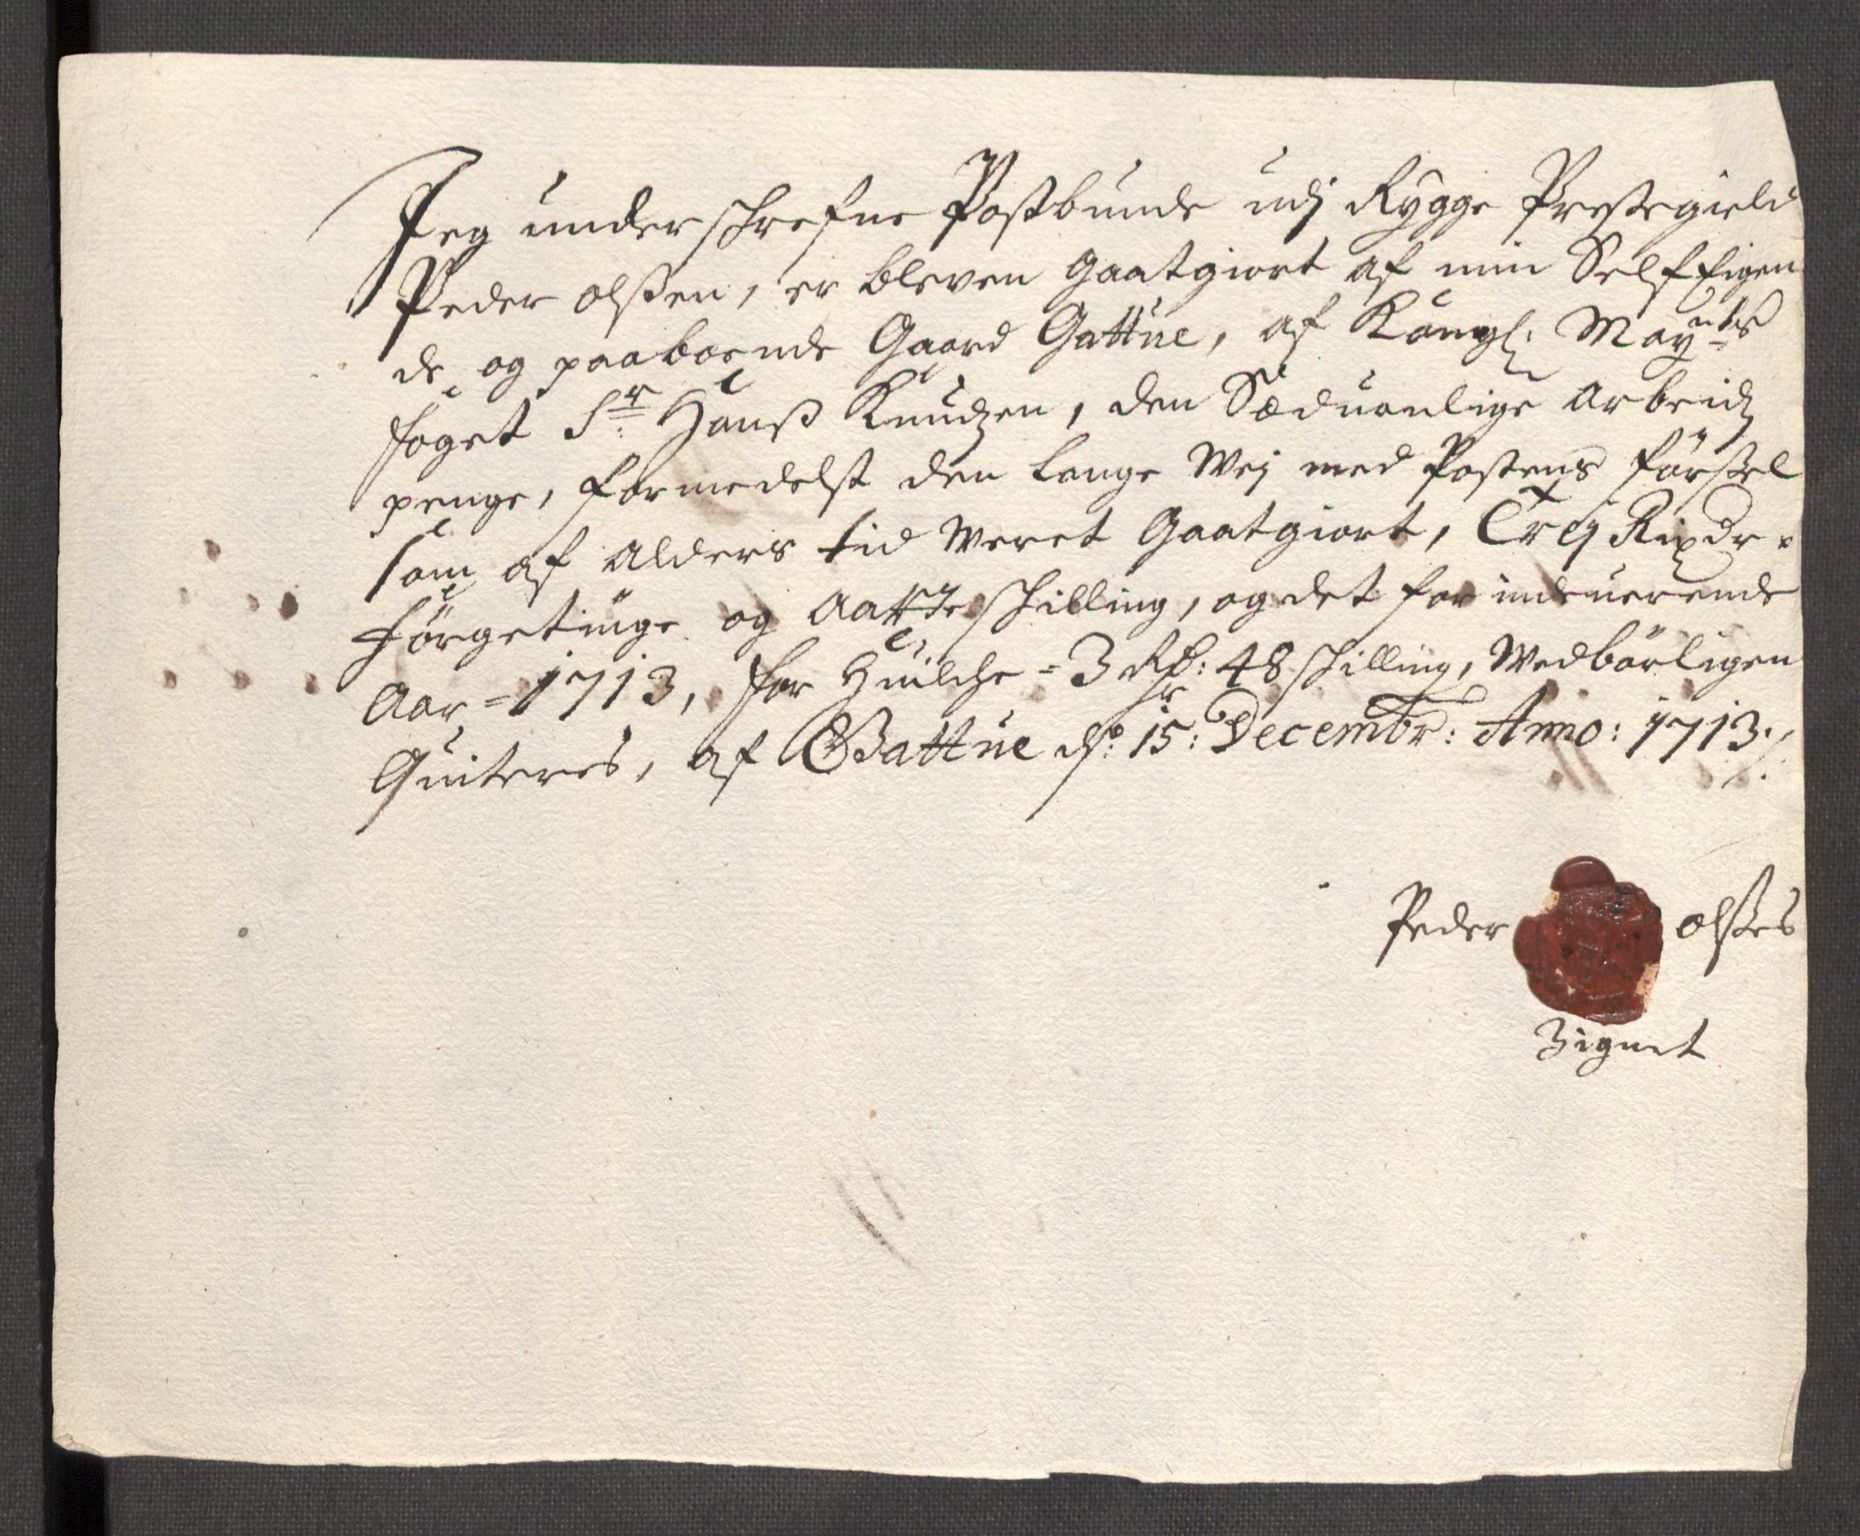 Jeg underschrefne Postbunde udj Rygge Prestegield
Peder olßen, er bleven gaatgiort af min Selffeigen
de og paaboende Gaard Gattue, af Kongl: Mayts
foget Sr: Hanß Knudzen, den Sæduanlige arbeidz
penge, formedelst den lange Wej med Postens førsel
som af Alders tid Weret gaatgiort, Trej Rixdr
førgetiuge og Aatte schilling, og det for indeuerende
Aar = 1713, for Huilche = 3 Rd: 48 schilling, Wedbørligen
Quiteres, af Gattue ds: 15: Decembr: Anno: 1713 ./.
Peder olßes
Zignet